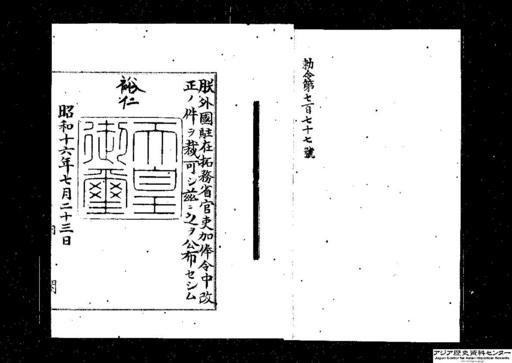 勅令第七百七十七號
朕外國駐在拓務省官吏加俸令中改
正ノ件ヲ裁可シ茲ニ之ヲ公布セシム
裕仁
天皇
御璽
昭和十六年七月二十三日
内閣
アジア歴史資料センター
Japan Center for Asian Historical Records